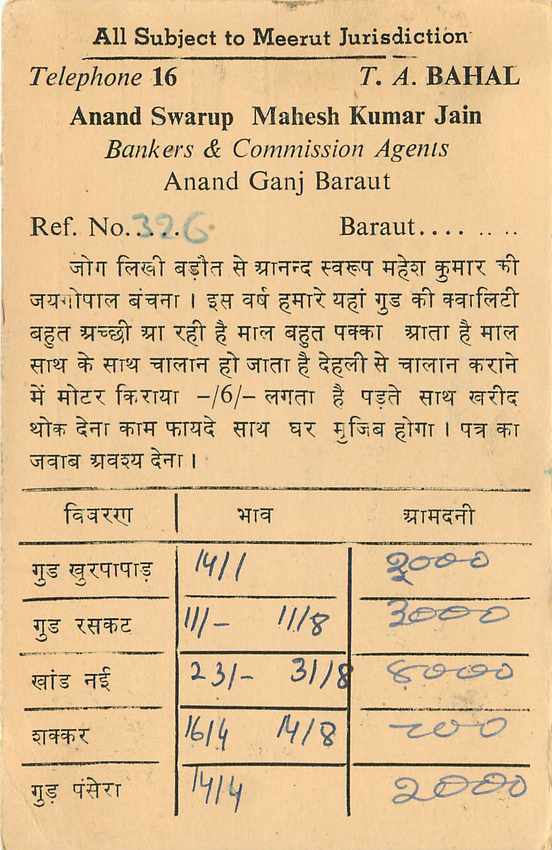 All Subject to Meerut Jurisdiction
Telephone 16 T. A. BAHAL
Anand Swarup Mahesh Kumar Jain
Bankers & Commission Agents
Anand Ganj Baraut
Ref. No. 326 Baraut.... .. ..
जोग लिखी बड़ौत से आनन्द स्वरूप महेश कुमार की
जयगोपाल बंचना । इस वर्ष हमारे यहां गुड की क्वालिटी
बहुत अच्छी आ रही है माल बहुत पक्का आता है माल
साथ के साथ चालान हो जाता है देहली से चालान कराने
में मोटर किराया -/6/- लगता है पड़ते साथ खरीद
थोक देना काम फायदे साथ घर मुजिब होगा । पत्र का
जवाब अवश्य देना ।
विवरण भाव आमदनी
गुड खुरपापाड़ 14/1 २०००
गुड रसकट 11/- 11/8 ३०००
खांड नई 23/- 31/8 ४०००
शक्कर 16/4 14/8
गुड़ पंसेरा 14/4 2000